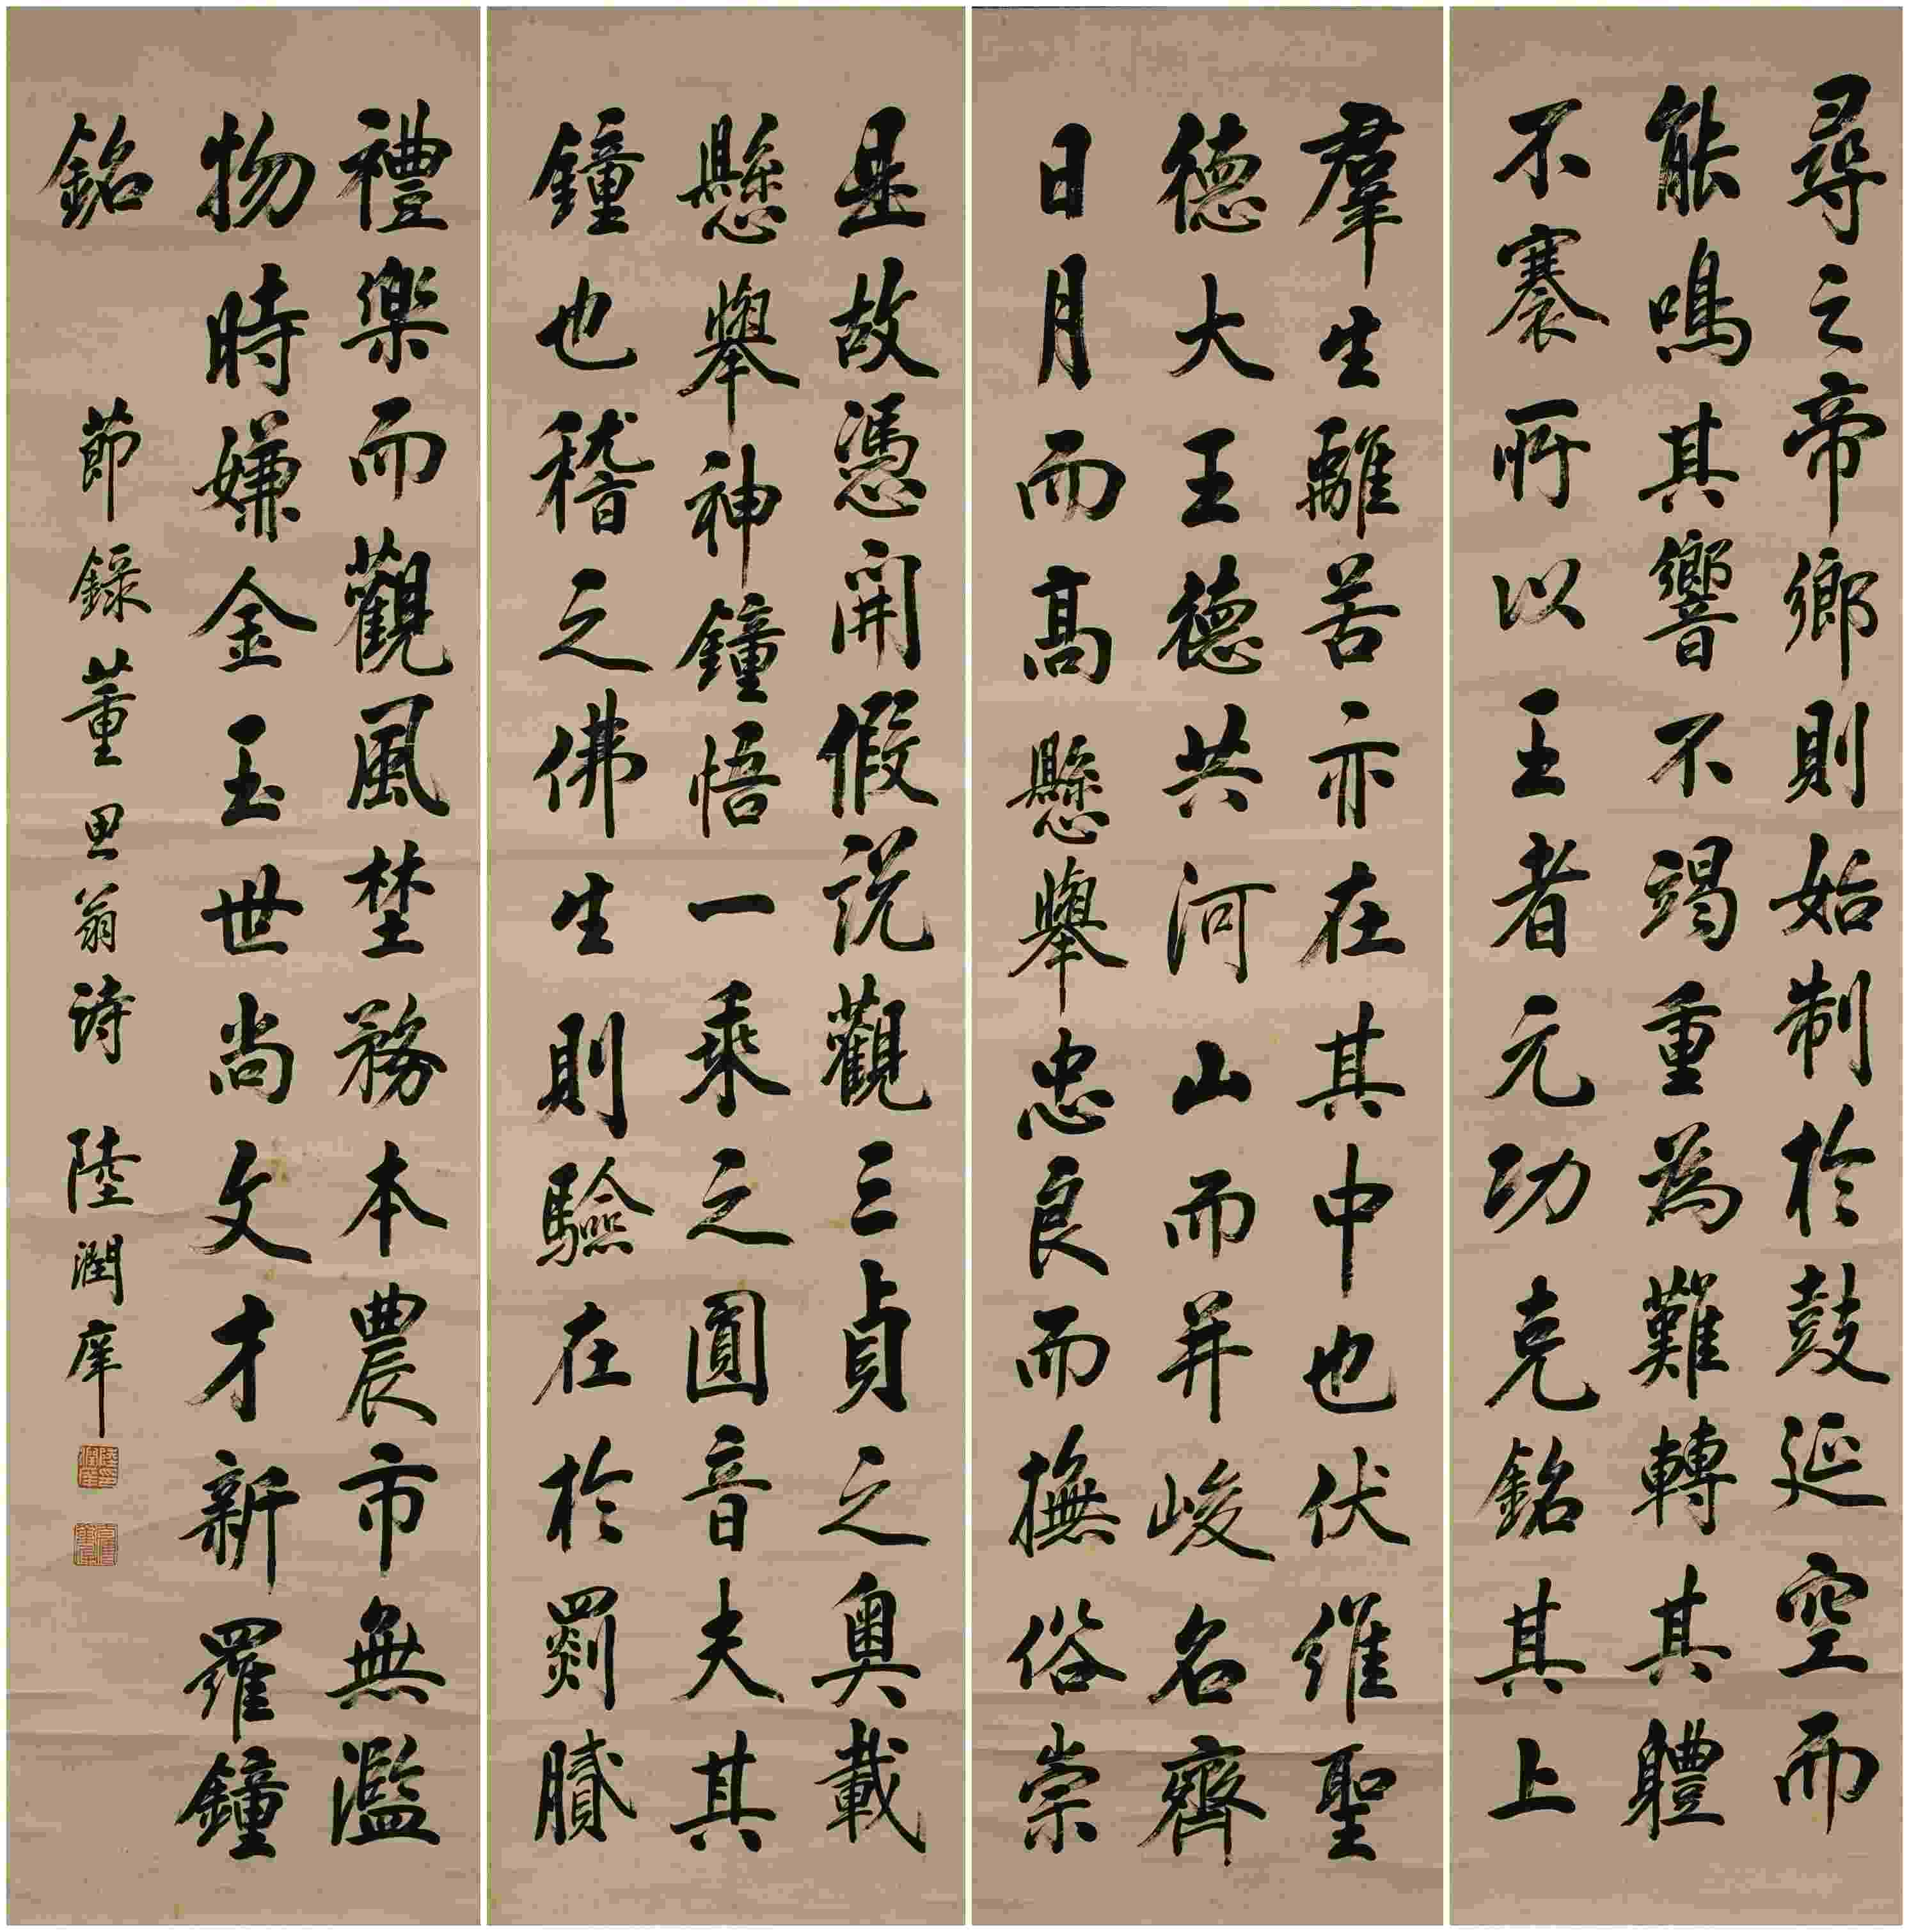 尋之帝鄉則始制於鼓延空而
能鳴其響不竭重為難轉其體
不褰所以王者元功克銘其上
羣生離苦亦在其中也伏維聖
德大王德共河山而并峻名齊
日月而高懸舉忠良而撫俗崇
是故憑開假說觀三貞之奧載
懸舉神鐘悟一乘之圓音夫其
鐘也稽之佛生則驗在於罽膩
禮樂而觀風埜務本農市無濫
物時嫌金玉世尚文才新羅鐘
銘
節錄董思翁詩 陸潤庠